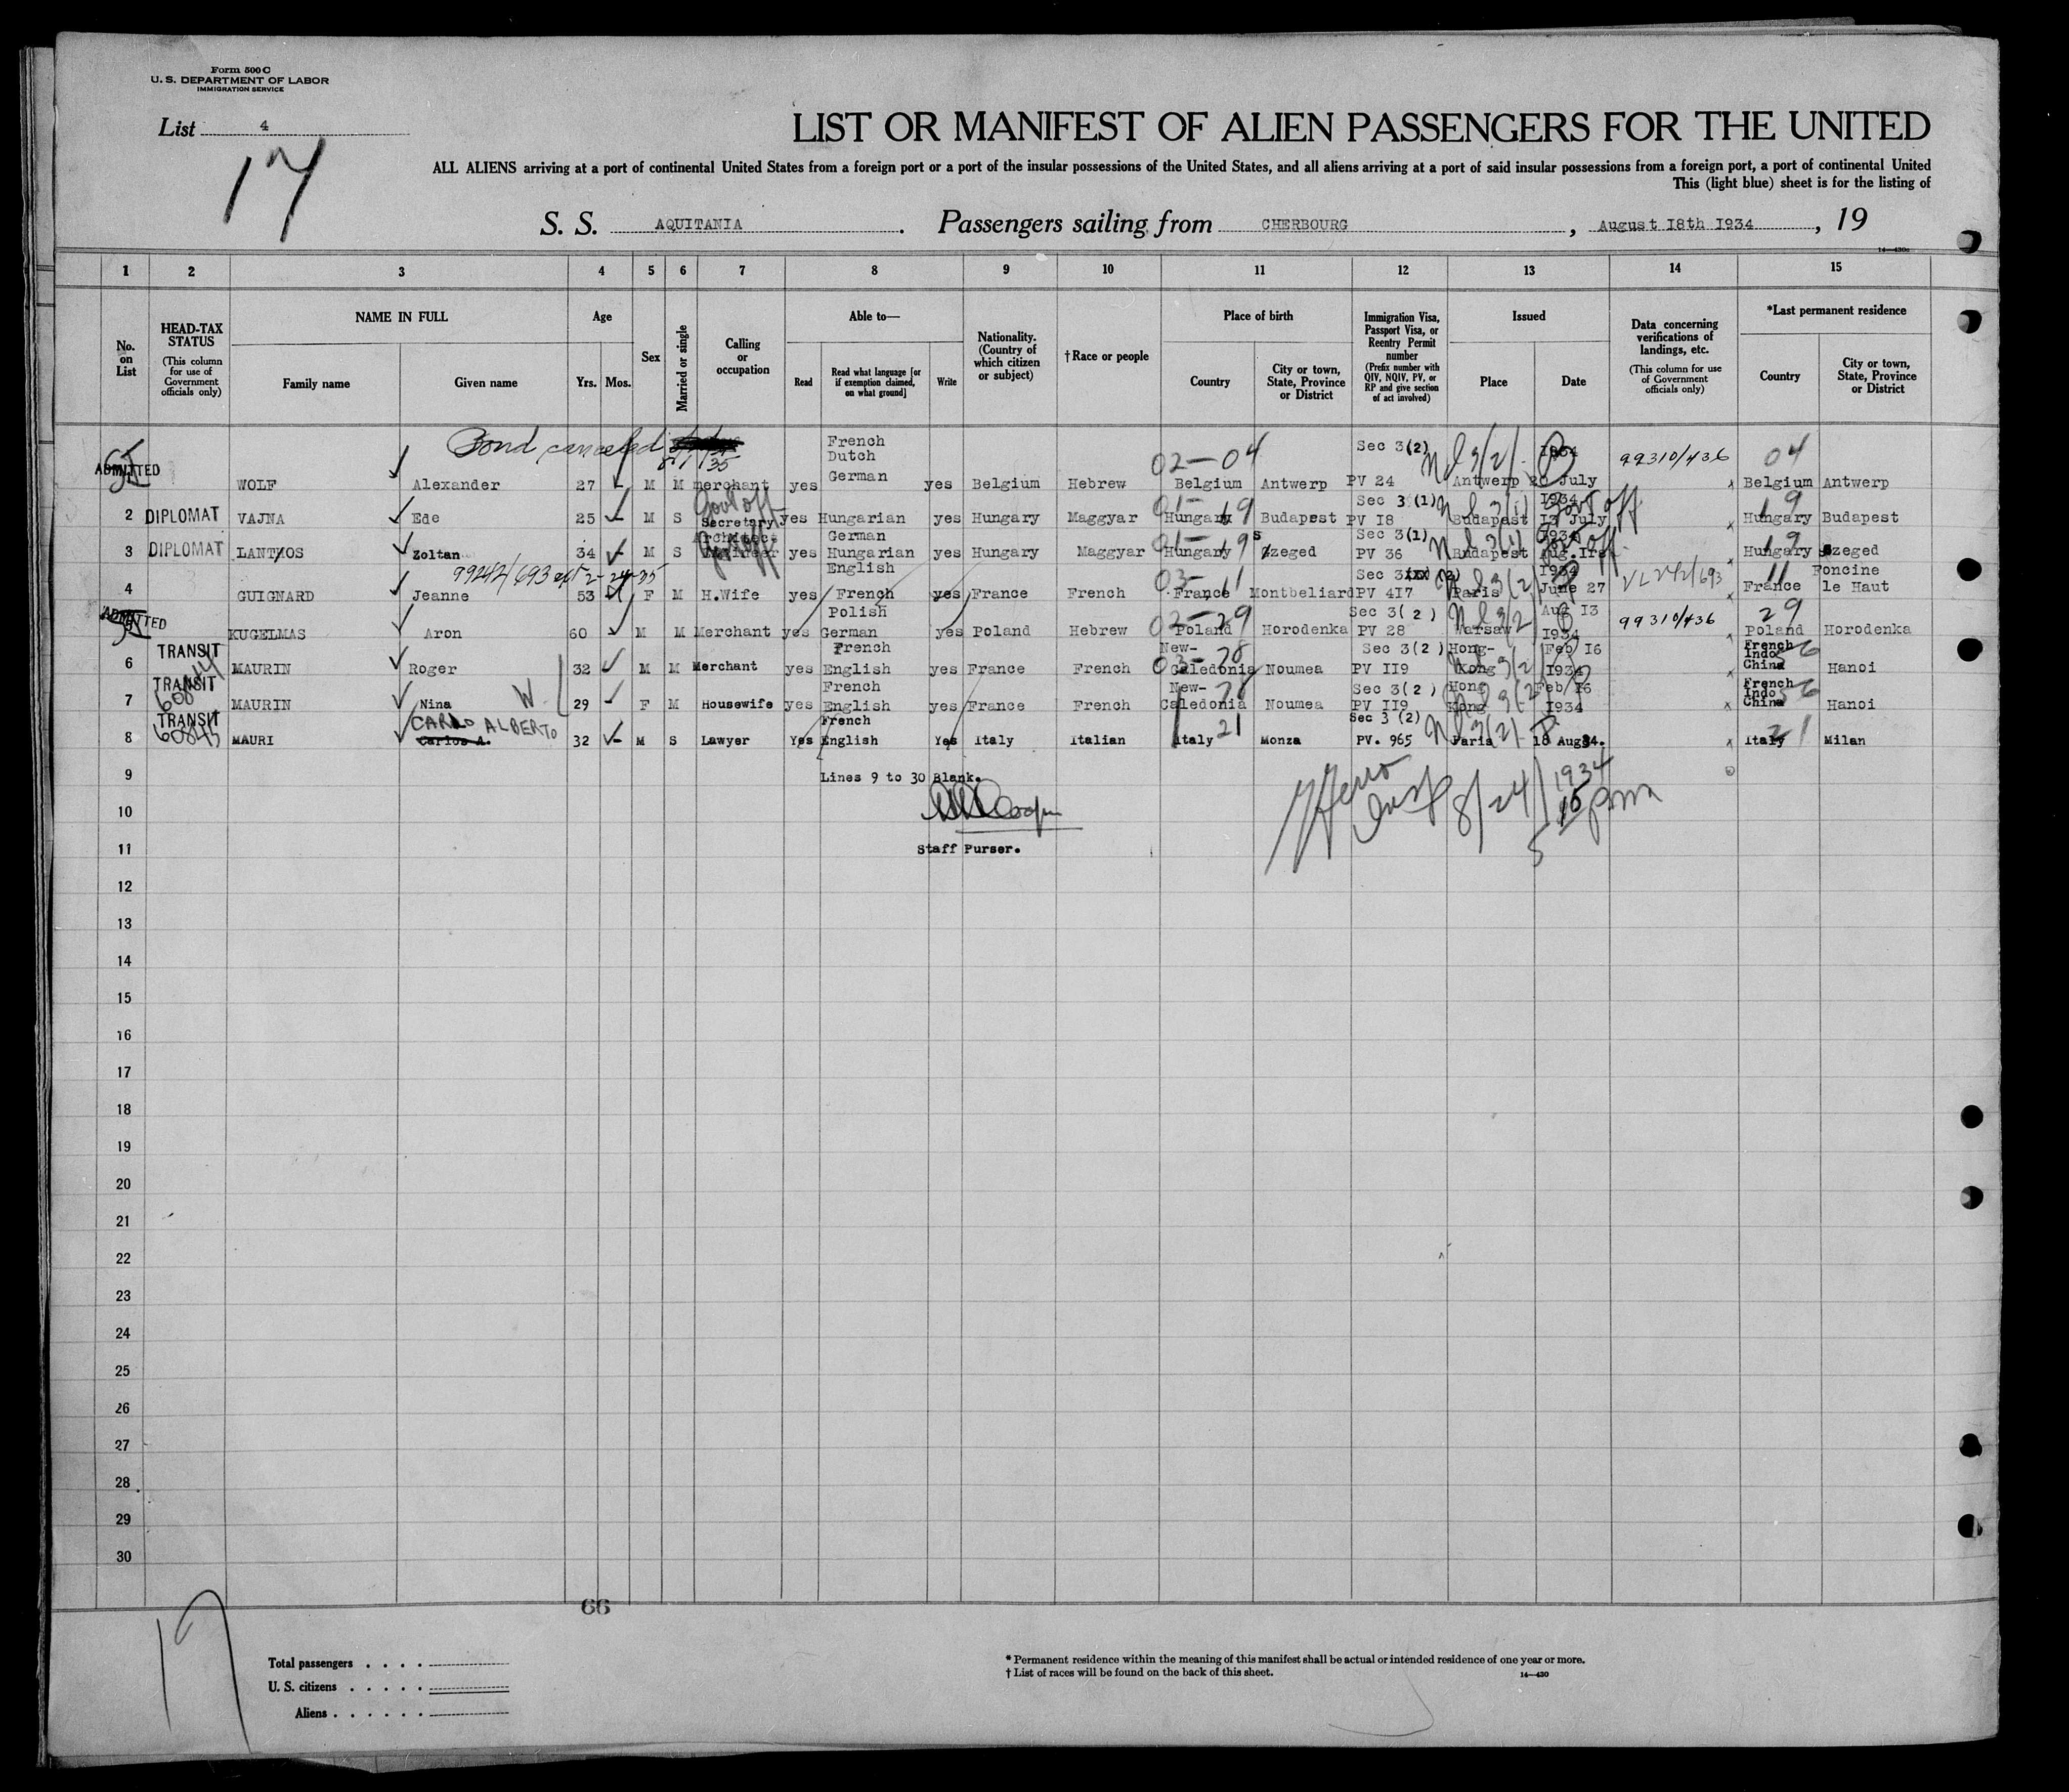 Form 500 C
U. S. DEPARTMENT OF LABOR
IMMIGRATION SERVICE
List 4
17
LIST OR MANIFEST OF ALIEN PASSENGERS FOR THE UNITED
ALL ALIENS arriving at a port of continental United States from a foreign port or a port of the insular possessions of the United States, and all aliens arriving at a port of said insular possessions from a foreign port, a port of continental United
This (light blue) sheet is for the listing of
S. S. AQUITANIA. Passengers sailing from CHERBOURG, August I8th I934, 19
14—430c
1 2 3 4 5 6 7 8 9 10 11 12 13 14 15
No. on List
HEAD-TAX STATUS (This column for use of Government officials only)
NAME IN FULL
Family name
Given name
Age
Yrs. Mos.
Sex
Married or single
Calling or occupation
Able to—
Read
Read what language [or if exemption claimed, on what ground]
Write
Nationality. (Country of which citizen or subject)
†Race or people
Place of birth
Country
City or town, State, Province or District
Immigration Visa, Passport Visa, or Reentry Permit number (Prefix number with QIV, NQIV, PV, or RP and give section of act involved)
Issued
Place
Date
Data concerning verifications of landings, etc. (This column for use of Government officials only)
*Last permanent residence
Country
City or town, State, Province or District
Bond canceled 5/1/35
ADMITTED WOLF Alexander 27 M M merchant yes French Dutch German yes Belgium Hebrew 02-04 Belgium Antwerp Sec 3(2) PV 24 Antwerp 20 July I934 99310/436 04 Belgium Antwerp
2 DIPLOMAT VAJNA Ede 25 M S Govt off Secretary yes Hungarian yes Hungary Maggyar 01-19 Hungary Budapest Sec 3 (1) PV I8 Budapest I3 July I934 Govt off 19 Hungary Budapest
3 DIPLOMAT LANTYOS Zoltan 34 M S Architect Govt off yes German Hungarian yes Hungary Maggyar 01-19 Hungary Szeged Sec 3(1) PV 36 Budapest Aug.Ist I934 Govt off. 19 Hungary Szeged
99242/693 2-24-35
4 GUIGNARD Jeanne 53 F M H.Wife yes English French yes France French 03-11 France Montbeliard Sec 3 (2) PV 4I7 Paris June 27 I934 11 France Foncine le Haut
ADMITTED KUGELMAS Aron 60 M M Merchant yes Polish German yes Poland Hebrew 02-29 Poland Horodenka Sec 3( 2 ) PV 28 Warsaw Aug I3 I934 99310/436 29 Poland Horodenka
6 TRANSIT MAURIN Roger 32 M M Merchant yes French English yes France French New-Caledonia Noumea Sec 3(2 ) PV II9 Hong-Kong Feb I6 I934 French Indo China 56 Hanoi
7 TRANSIT MAURIN Nina W 29 F M Housewife yes French English yes France French New-Caledonia Noumea Sec 3(2 ) PV II9 Hong Kong Feb I6 I934 French Indo China 56 Hanoi
8 TRANSIT 60845 MAURI CARLO ALBERTO Carlos A. 32 M S Lawyer Yes French English Yes Italy Italian Italy 21 Monza Sec 3 (2) PV. 965 Paris 18 Aug 34. Italy 21 Milan
9 Lines 9 to 30 Blank.
10
11 Staff Purser.
8/24/1934
5 15 pm
12
13
14
15
16
17
18
19
20
21
22
23
24
25
26
27
28
29
30
66
17
Total passengers
U. S. citizens
Aliens
* Permanent residence within the meaning of this manifest shall be actual or intended residence of one year or more.
† List of races will be found on the back of this sheet.
14—430